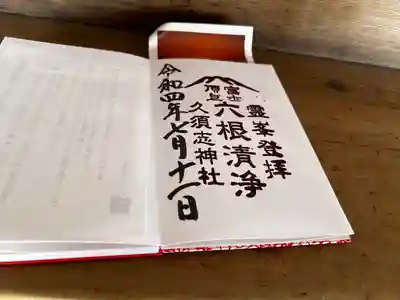 靈峯登拝
富士
頂上
六根清浄
久須志神社
令和四年七月十一日